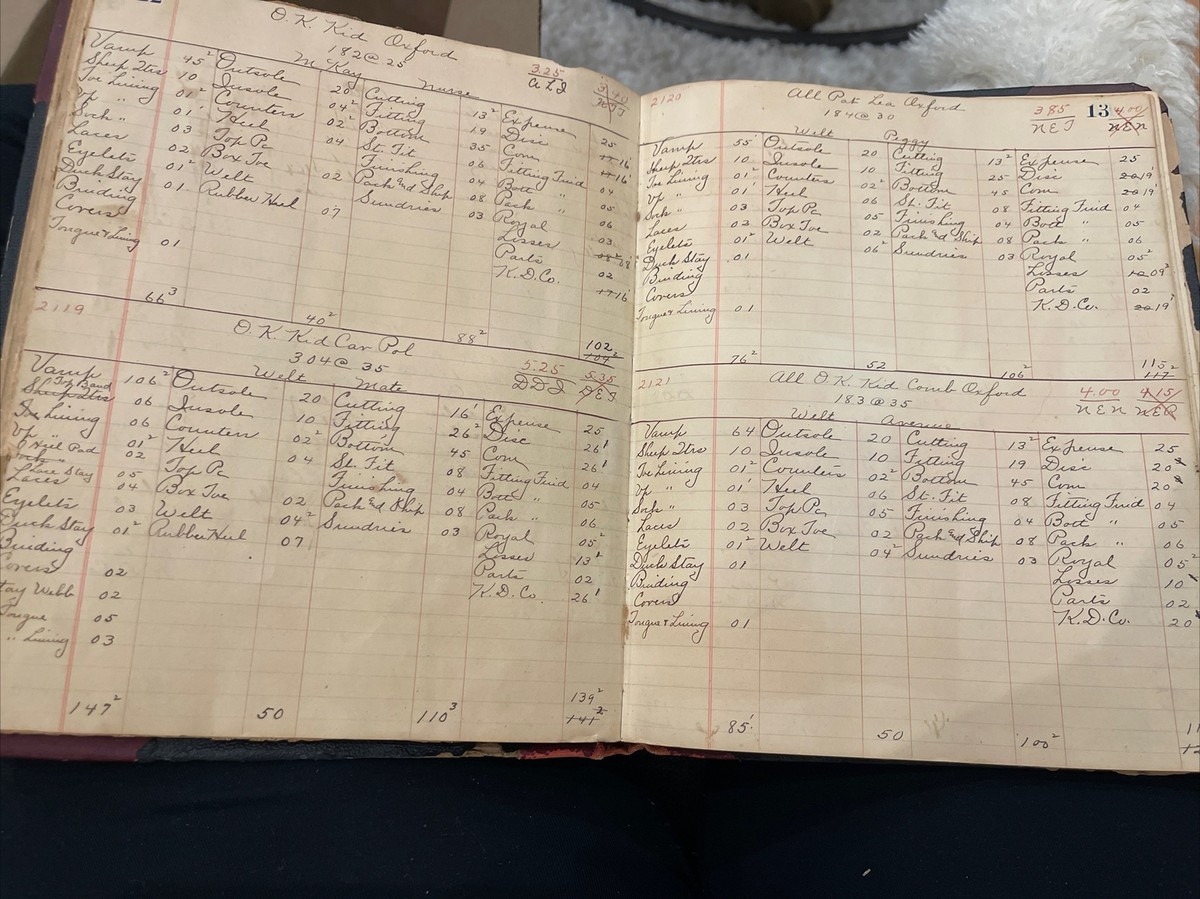 O.K. Kid Oxford
182 @ 25
McKay Nurse
3.25
A L I
Vamp 45² Outsole 20 Cutting 13² Expense 25
Sheep 2trs 10 Insole 04² Fitting 19 Disc 16¹
Toe Lining 01² Counters 02² Bottom 35 Com 16¹
Vp " 01¹ Heel 04 St. Fit 06 Fitting Fund 04
Sock " 03 Top Pc Finishing 04 Bott " 05
Laces 02 Box Toe 02 Pack & Ship 08 Pack " 06
Eyelets 01² Welt Sundries 03 Royal 03
Duck Stay 01 Rubber Heel 07 Losses
Binding Parts 02
Covers K.D.Co. 16
Tongue & Lining 01
66³ 40² 88² 102
2119
O.K. Kid Car Pol
304 @ 35
Welt Mate
5.25 5.35
D D I
Vamp 106² Outsole 20 Cutting 16¹ Expense 25
Top Band
Sheep 2trs 06 Insole 10 Fitting 26² Disc 26¹
Toe Lining 06 Counters 02² Bottom 45 Com 26¹
Vp " 01² Heel 04 St. Fit 08 Fitting Fund 04
Heel Pad 02 Top Pc Finishing 04 Bott " 05
Lace Stay 05 Box Toe 02 Pack & Ship 08 Pack " 06
Laces 04 Welt 04² Sundries 03 Royal 05²
Eyelets 03 Rubber Heel 07 Losses 13¹
Duck Stay 01² Parts 02
Binding K.D.Co. 26¹
Covers 02
Stay Webb 02
Tongue 05
" Lining 03
147² 50 110³ 139²
141²
2120
All Pat Lea Oxford
184 @ 30
Welt Peggy
3 85 13 4.00
N E I N E N
Vamp 55¹ Outsole 20 Cutting 13² Expense 25
Sheep 2trs 10 Insole 10 Fitting 25² Disc 20 19¹
Toe Lining 01² Counters 02² Bottom 45 Com 20 19¹
Vp " 01¹ Heel 06 St. Fit 08 Fitting Fund 04
Sock " 03 Top Pc 05 Finishing 04 Bott " 05
Laces 02 Box Toe 02 Pack & Ship 08 Pack " 06
Eyelets 01² Welt 06² Sundries 03 Royal 05²
Duck Stay 01 Losses 10 09²
Binding Parts 02
Covers K.D.Co. 20 19¹
Tongue & Lining 01
76² 52 106² 115²
117
2121
All O.K. Kid Comb Oxford
183 @ 35
Welt Avenue
4.00 4.15
N E N N E R
Vamp 64 Outsole 20 Cutting 13² Expense 25
Sheep 2trs 10 Insole 10 Fitting 19 Disc 20
Toe Lining 01² Counters 02² Bottom 45 Com 20
Vp " 01¹ Heel 06 St. Fit 08 Fitting Fund 04
Sock " 03 Top Pc 05 Finishing 04 Bott " 05
Laces 02 Box Toe 02 Pack & Ship 08 Pack " 06
Eyelets 01² Welt 04² Sundries 03 Royal 05²
Duck Stay 01 Losses 10
Binding Parts 02
Covers K.D.Co. 20
Tongue & Lining 01
85¹ 50 100²